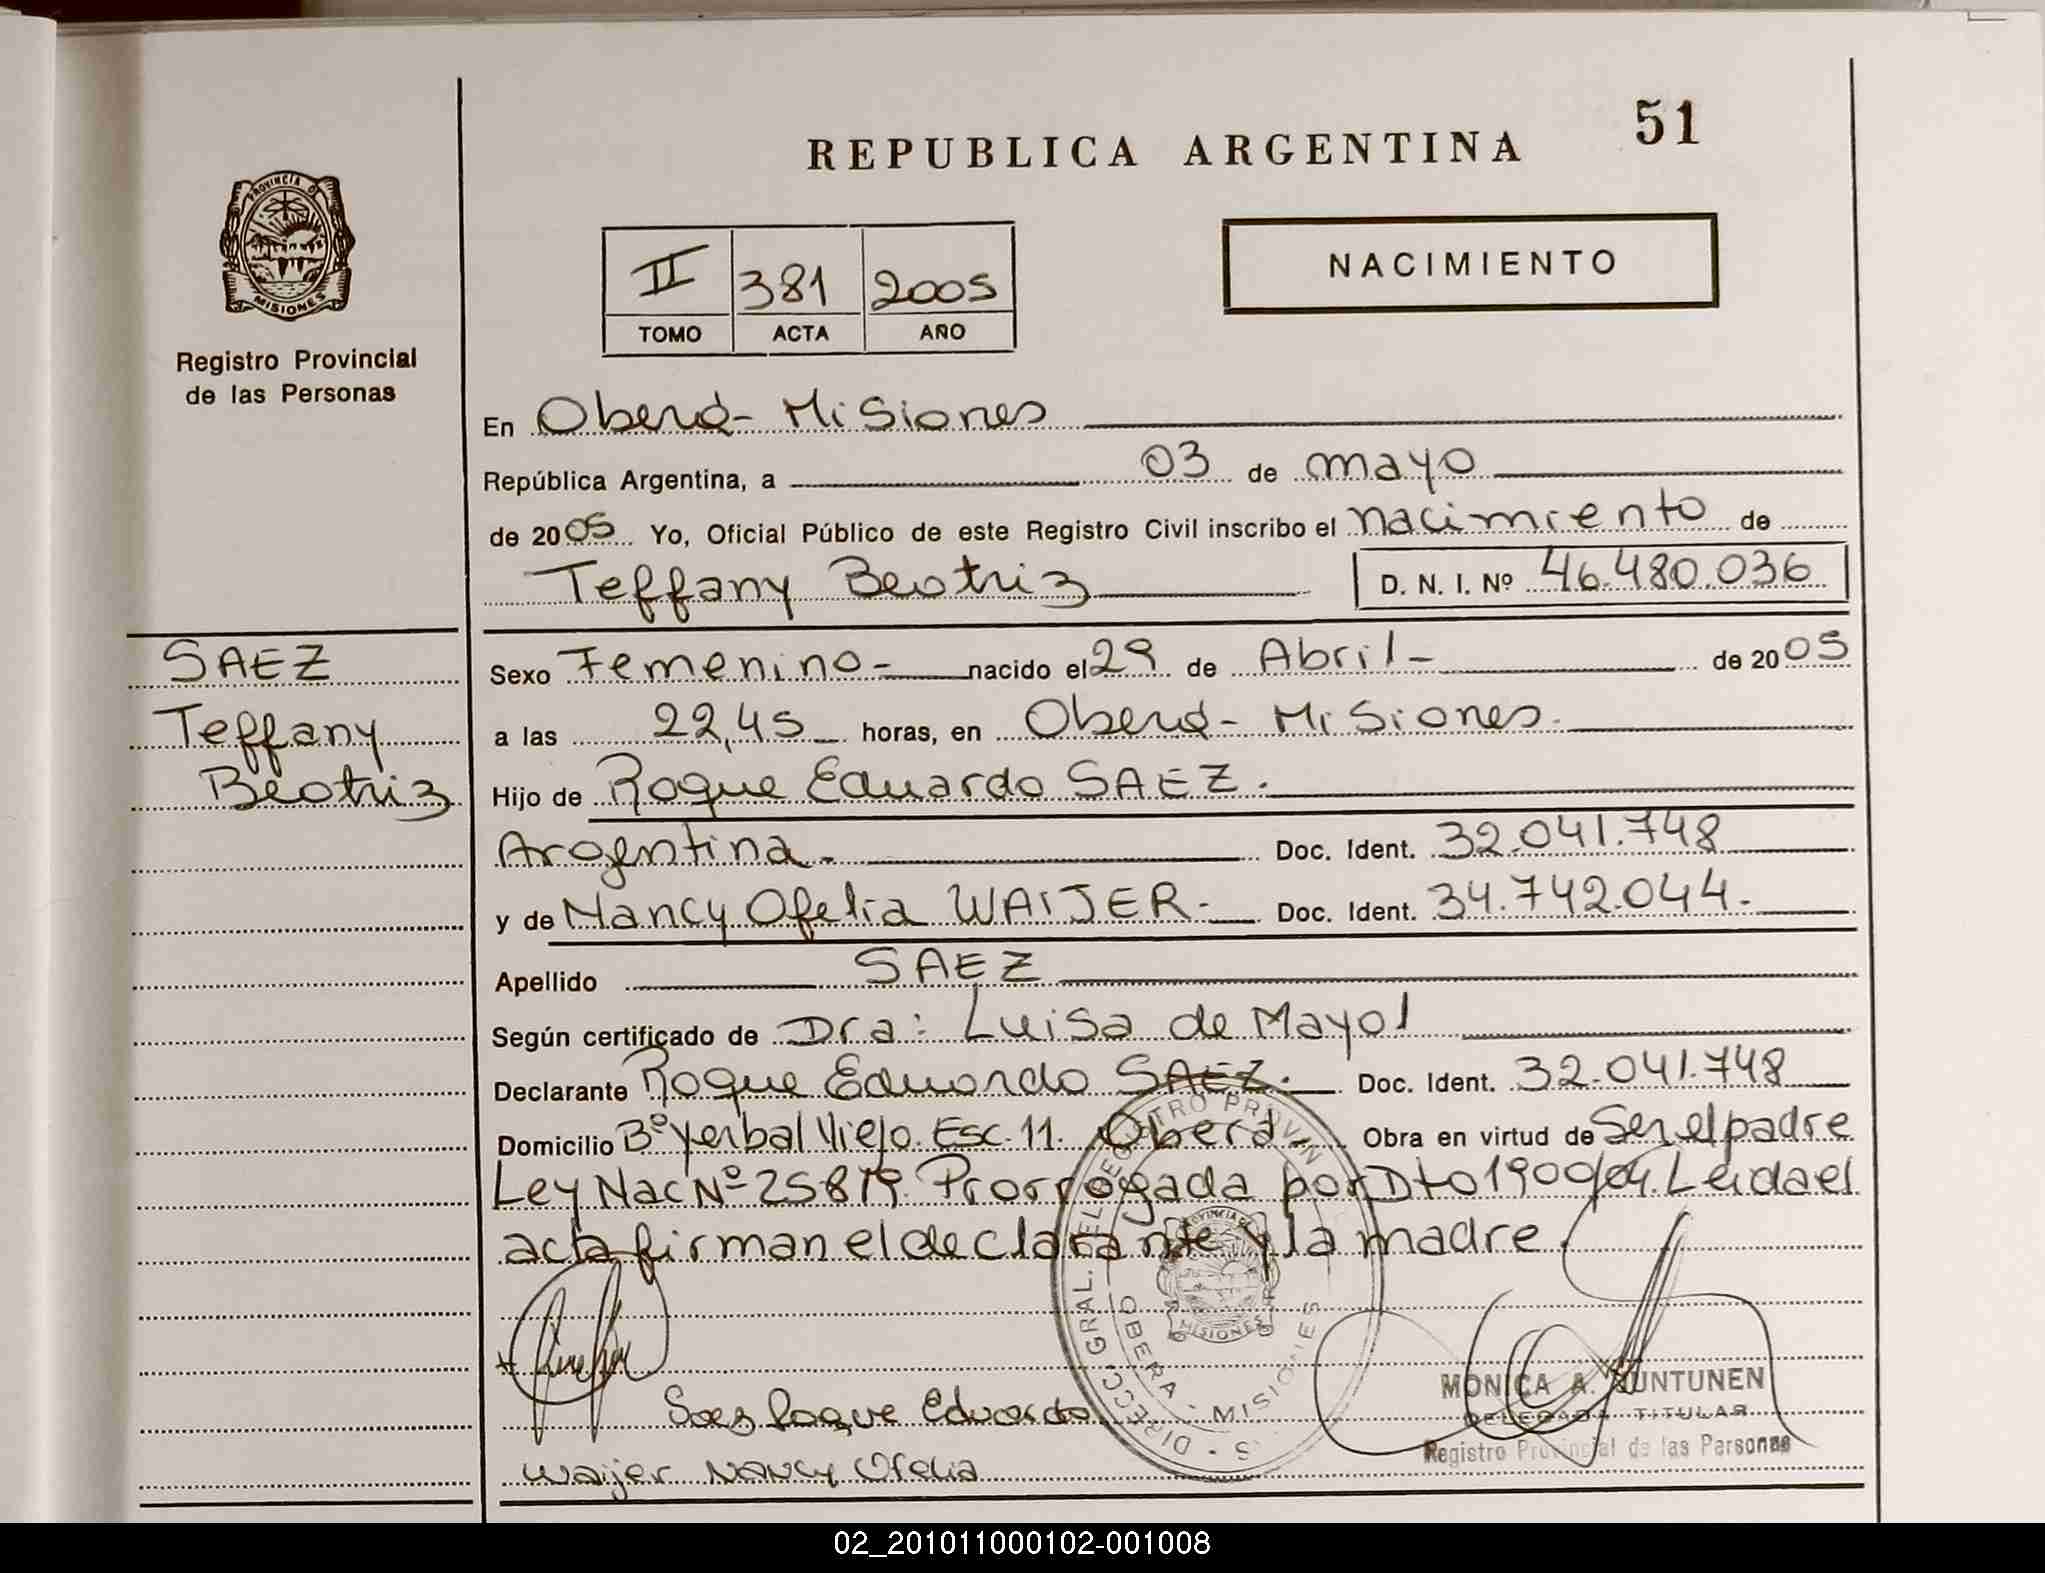 51
REPUBLICA ARGENTINA
PROVINCIA D
MISIONES
Registro Provincial
de las Personas
II 381 2005
TOMO ACTA AÑO
NACIMIENTO
En Oberá - Misiones
República Argentina, a 03 de mayo
de 2005 Yo, Oficial Público de este Registro Civil inscribo el nacimiento de
Teffany Beatriz D. N. I. Nº 46.480.036
SAEZ
Teffany
Beatriz
Sexo Femenino - nacido el 29 de Abril - de 2005
a las 22,45 horas, en Oberá - Misiones.
Hijo de Roque Eduardo SAEZ.
Argentina. Doc. Ident. 32.041.748
y de Nancy Ofelia WAIJER - Doc. Ident. 34.742.044.
Apellido SAEZ
Según certificado de Dra: Luisa de Mayol
Declarante Roque Eduardo SAEZ. Doc. Ident. 32.041.748
Domicilio Bº Yerbal Viejo. Esc. 11. Oberá - Obra en virtud de Ser el padre
Ley Nac Nº 25819. Prorrogada por Dto 1900/04. Leida el
acta firman el declarante y la madre.
Saez Roque Eduardo
Waijer Nancy Ofelia
DIRECC. GRAL. DEL REGISTRO PROVIN
OBERA - MISIONES
MISIONES
MONICA A. SUNTUNEN
DELEGADA TITULAR
Registro Provincial de las Personas
02_201011000102-001008